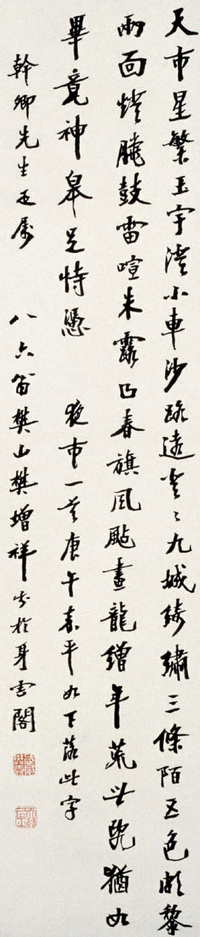 天市星繁玉宇澄小車沙路遠登〻九城錦繡三條陌五色頗黎
兩面燈臘鼓雷喧朱鷺凸春旗風颭畫龍繒年荒世亂猶如
畢竟神皋足恃憑 夜市一首庚午春平如下落此字
幹卿先生正屬 八六翁樊山樊增祥書於身雲閣